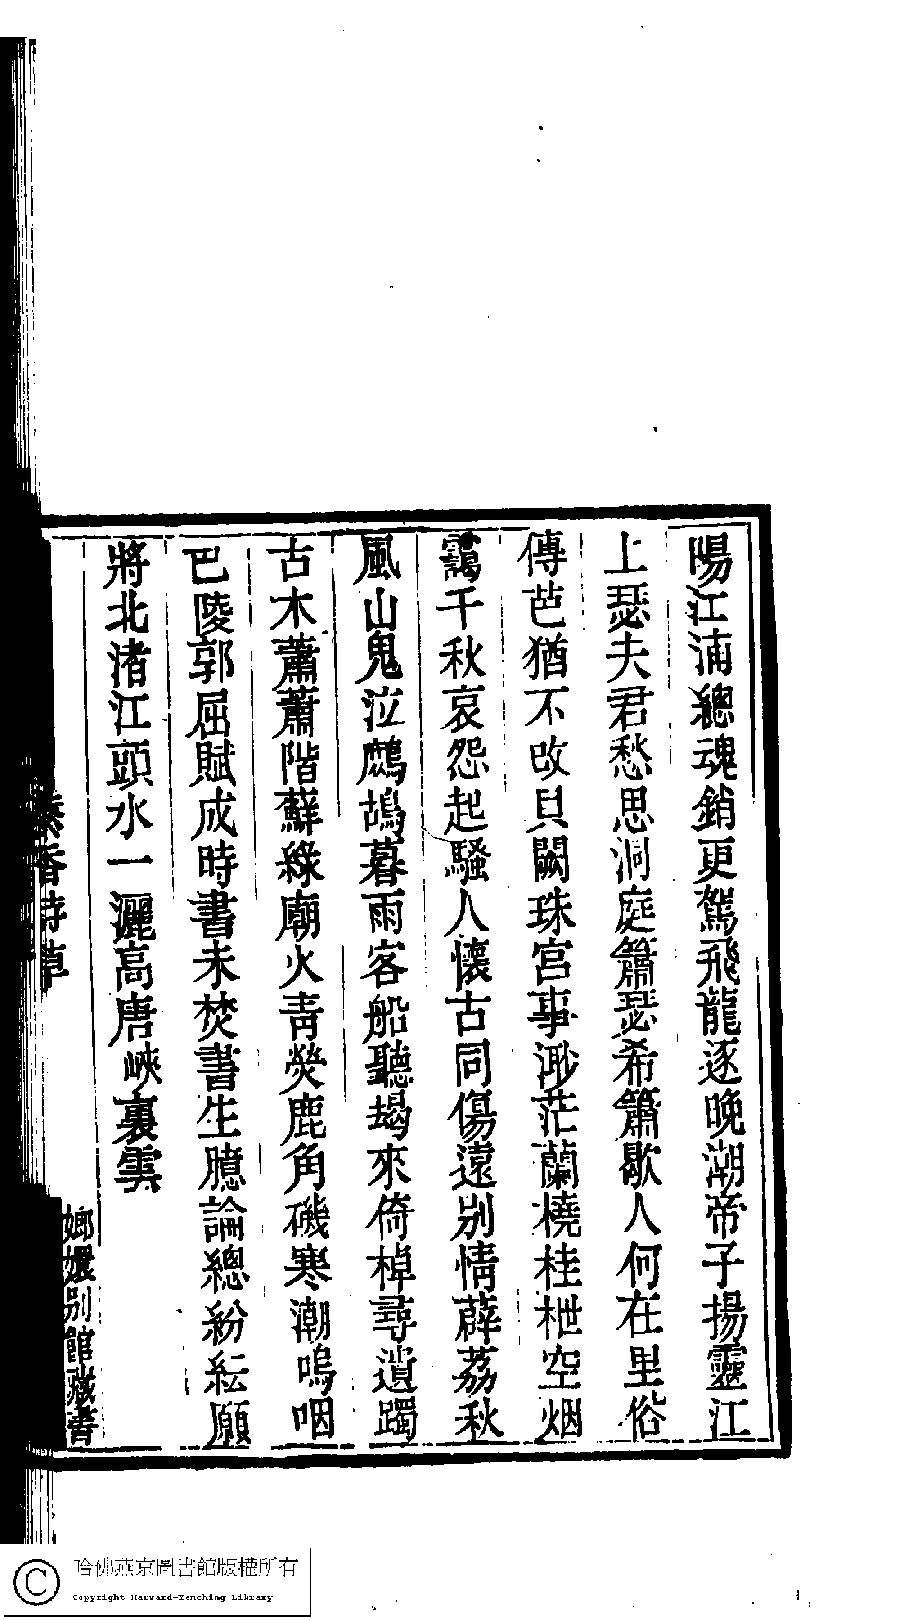 陽江浦總魂銷更駕飛龍逐晚潮帝子揚靈江
上瑟夫君愁思洞庭簫瑟希簫歇人何在里俗
傳芭猶不改貝闕珠宮事渺茫蘭橈桂枻空烟
靄千秋哀怨起騷人懷古同傷遠别情薜荔秋
風山鬼泣鷓鴣暮雨客船聽朅來倚棹尋遺躅
古木蕭蕭階蘚綠廟火青熒鹿角磯寒潮嗚咽
巴陵郭屈賦成時書未焚書生臆論總紛紜願
將北渚江頭水一灑高唐峽裏雲
香詩草
嫏嬛别館藏書
哈佛燕京圖書館版權所有
Copyright Harvard-Yenching Library